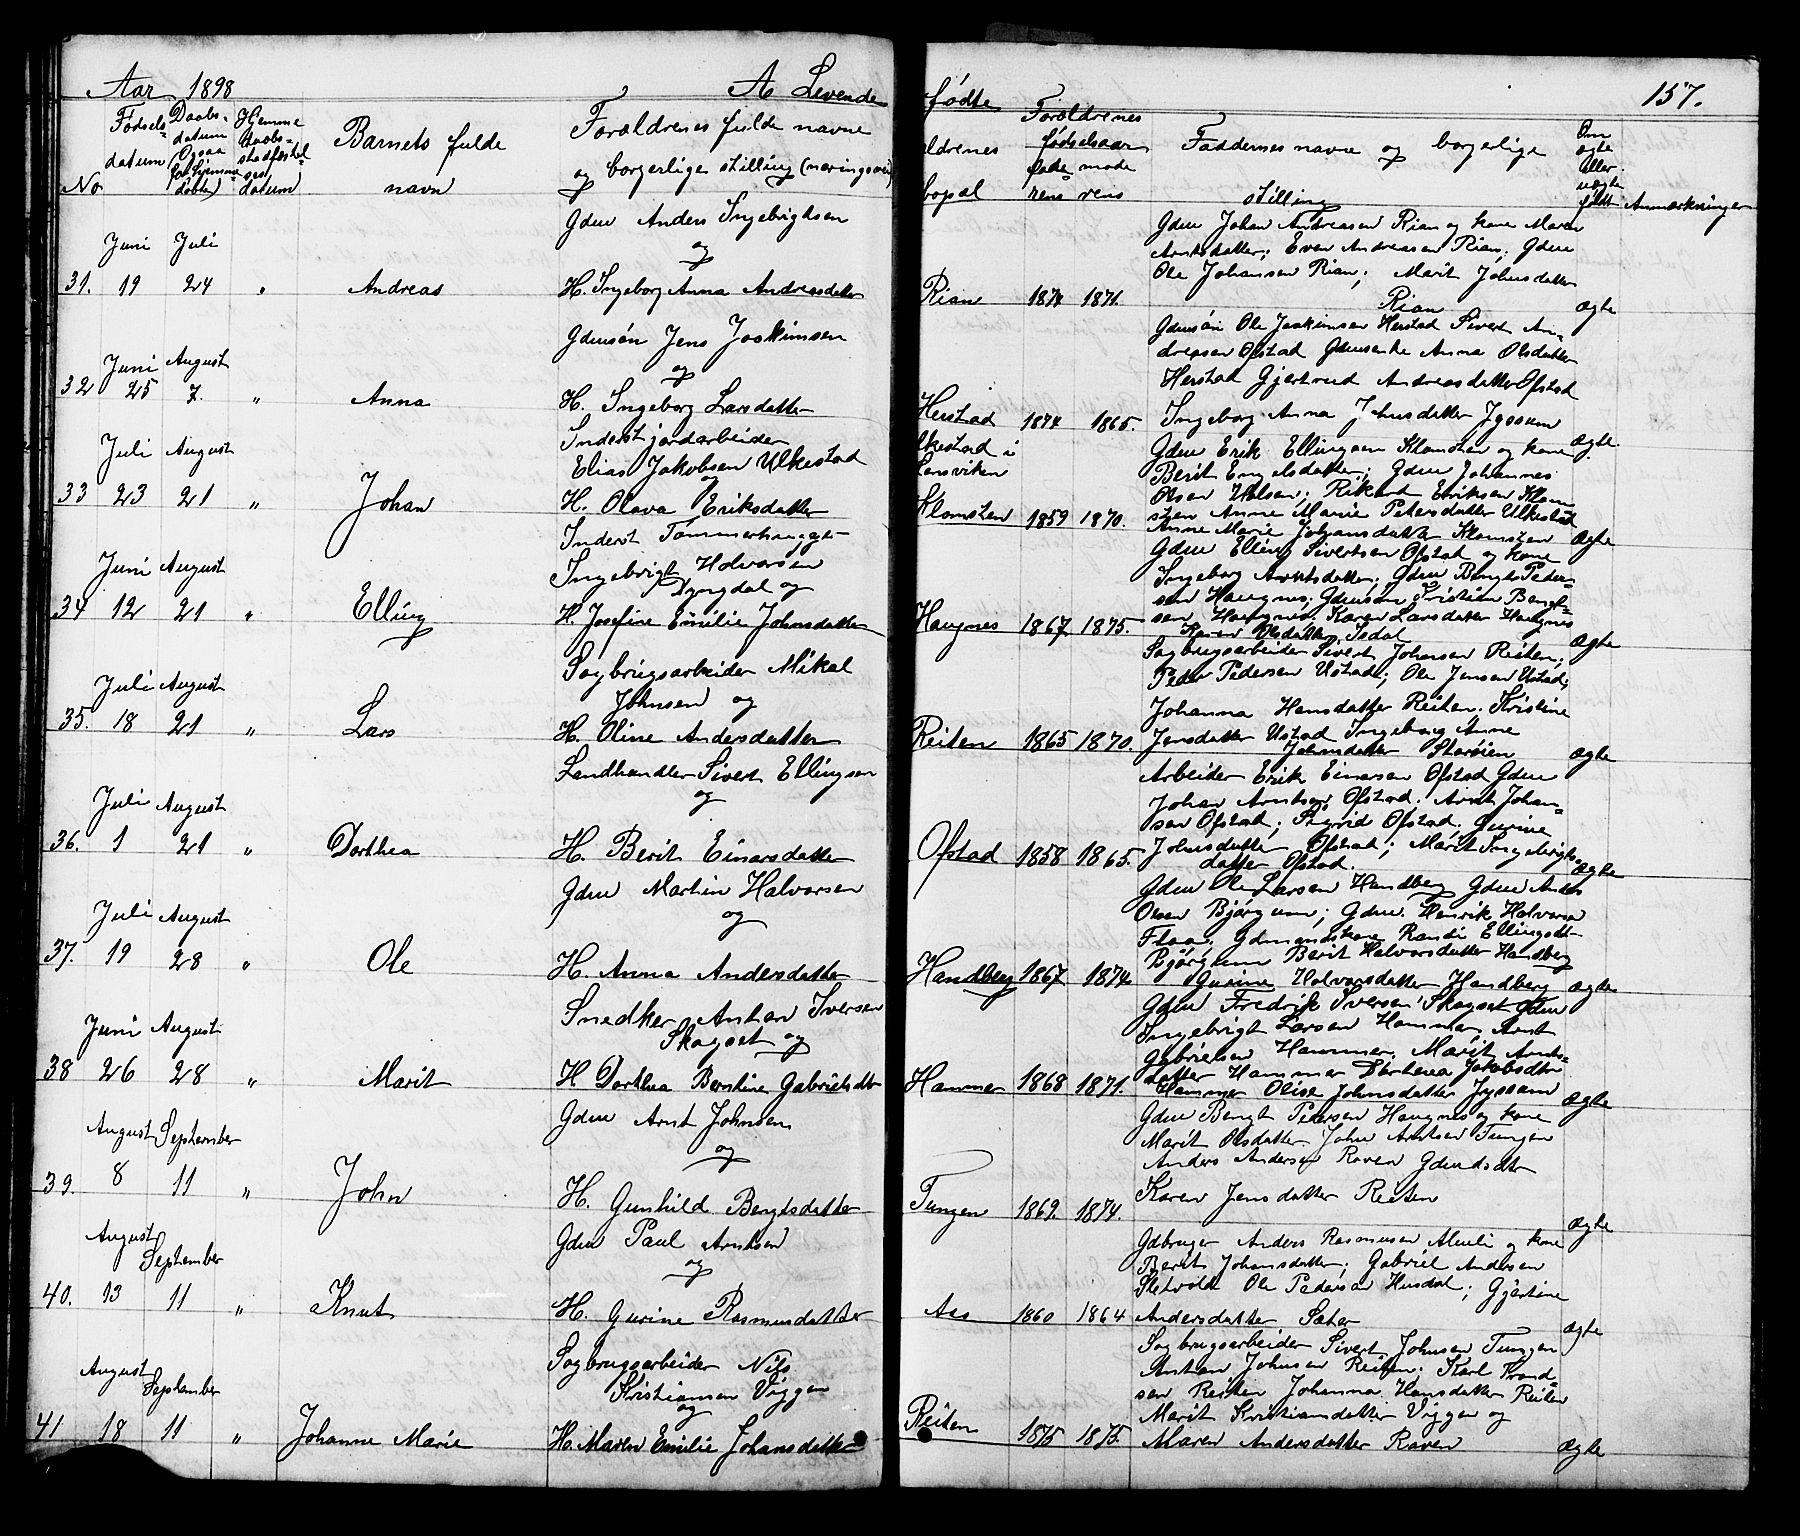 Aar 1898
A Levende
No
Fødsels-
datum
Daabs-
datum
Ogsaa
for hjemme
døbte)
Hjemme
daabs-
stadfæstel
ses
datum
Barnets fulde
navn
Foraldrenes fulde navne
og borgerlige stilling (næringsvei)
Juni Juli
31. 19 24 " Andreas
Gdm Anders Ingebrigtsen
og
H. Ingeborg Anna Andreasdatter
Juni August
32 25 7. " Anna
Gdmsøn Jens Joakimsen
og
H. Ingeborg Larsdatter
Juli August
33 23 21 " Johan
Inderst jordarbeider
Elias Jakobsen Ulkestad
og
H. Olava Eriksdatter
Juni August
34 12 21 " Elling
Inderst Tømmerhugger
Ingebrigt Halvorsen
Dyngdal og
H. Josefine Emilie Johnsdatter
Juli August
35. 18 21 " Lars
Sagbrugsarbeider Mikal
Johnsen og
H. Oline Andersdatter
Juli August
36. 1 21 " Dorthea
Landhandler Sivert Ellingsen
og
H. Berit Einarsdatter
Juli August
37. 19 28 " Ole
Gdm Martin Halvorsen
og
H. Anna Andersdatter
Juni August
38 26 28 " Marit
Snedker Anton Iversen
Skogset og
H Dorthea Berntine Gabrielsdtr
August September
39. 8 11 " John
Gdm Arnt Johnsen
og
H. Gunhild Bengtsdatter
August September
40. 13 11 " Knut
Gdm Paul Arntsen
og
H. Gurine Rasmusdatter
August September
41 18 11 " Johanne Marie
Sagbrugsarbeider Nils
Kristiansen Viggen
og
H. Maren Emilie Johansdatter
fødte
157.
ldrenes
bopæl
Foraldrenes
fødselsaar
fade- mode
rens rens
Faddernes navne og borgerlige
stilling
Om
ægte
eller
uægte
født
Anmærkninger
Gdm Johan Andreasen Rian og kone Maren
Arntsdatter; Even Andreasen Rian; Gdm
Ole Johansen Rian; Marit Johnsdatter
Rian 1874 1871. Rian ægte
Gdmsøn Ole Joakimsen Herstad Sivert An-
dreasen Ofstad Gdmenke Anna Olsdatter
Herstad Gjertrud Andreasdatter Ofstad
Herstad 1874 1865. Ingeborg Anna Johnsdatter Jyssum ægte
lkestad i
Lensviken
Gdm Erik Ellingsen Klomsten og kone
Berit Engelsdatter; Gdm Johannes
Olsen Ulstad; Rikart Eriksen Klom-
Klomsten 1859 1870. sten Anne Marie Petersdatter Ulkestad
Anne Marie Johansdatter Klomsten ægte
Gdm Elling Sivertsen Ofstad og kone
Ingeborg Arntsdatter; Gdm Bengt Peder-
sen Haugnes; Gdmsøn Kristian Bengt-
Haugnes 1867 1875. sen Haugnes. Karen Larsdatter Haugnes
Karen Olsdatter Isdal ægte
Sagbrugsarbeider Sivert Johansen Reiten;
Peder Pedersen Ustad; Ole Jensen Ustad;
Johanna Hansdatter Reiten. Kristine
Reiten 1865 1870. Jensdatter Ustad Ingeborg Anne
Johnsdatter Storøien ægte
Arbeider Erik Einarsen Ofstad Gdm
Johan Arntsen Ofstad; Arnt Johan-
sen Ofstad; Sigrid Ofstad; Gurine
Ofstad 1858 1865. Johnsdatter Ofstad; Marit Ingebrigts-
datter Ofstad. ægte
Gdm Ole Larsen Handberg Gdm Anders
Olsen Bjørgum; Gdm. Henrik Halvorsen
Flaa; Gdmandskone Randi Ellingsdt
Bjørgum Berit Halvorsdatter Handberg
Handberg 1867 1874 Gurine Halvorsdatter Handberg ægte
Gdm Fredrik Iversen Skogset Gdm
Ingebrigt Larsen Hammer; Arnt
Gabrielsen Hammer. Marit Arnts-
datter Hammer Dorthea Jakobsdtr
Hammer 1868 1871. Hammer Olise Johnsdatter Jyssum ægte
Gdm Bengt Petersen Haugnes og kone
Marit Olsdatter. John Arntsen Tungen
Anders Andersen Raven Gdmdsdtr
Tungen 1869. 1874. Karen Jensdatter Reiten ægte
Gdbruger Anders Rasmusen Aluli og kone
Berit Johansdatter; Gabriel Andersen
Sletvold Ole Pedersen Husdal; Gjertine
Aas 1860 1864 Andersdatter Sæter ægte
Sagbrugsarbeider Sivert Johnsen Tungen
Anton Johnsen Reiten; Karl Trond-
sen Reiten Johanna Hansdatter Reiten
Marit Kristiansdatter Viggen og
Reiten 1875 1875. Maren Andersdatter Raven ægte